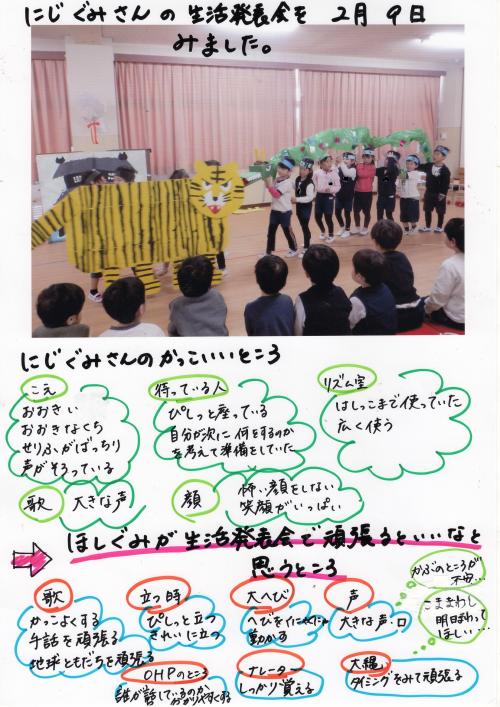 にじぐみさんの生活発表会を 2月 9日
みました。
にじぐみさんのかっこいいところ
こえ
おおきい
おおきなくち
せりふがばっちり
声がそろっている
待っている人
ぴしっと座っている
自分が次に何をするのか
を考えて準備をしていた
リズム室
はしっこまで使っていた
広く使う
歌
大きな声
顔
怖い顔をしない
笑顔がいっぱい
ほしぐみが生活発表会で頑張るといいなと
思うところ
歌
かっこよくする
手話を頑張る
地球ともだちを頑張る
立つ時
ぴしっと立つ
きれいに立つ
大へび
へびを
動かす
声
大きな声・口
かぶのところが
不安…
こままわし
明日まわって
ほしい…
OHPのところ
誰が話しているのか
わかりやすくする
ナレーター
しっかり覚える
大縄
タイミングをみて頑張る